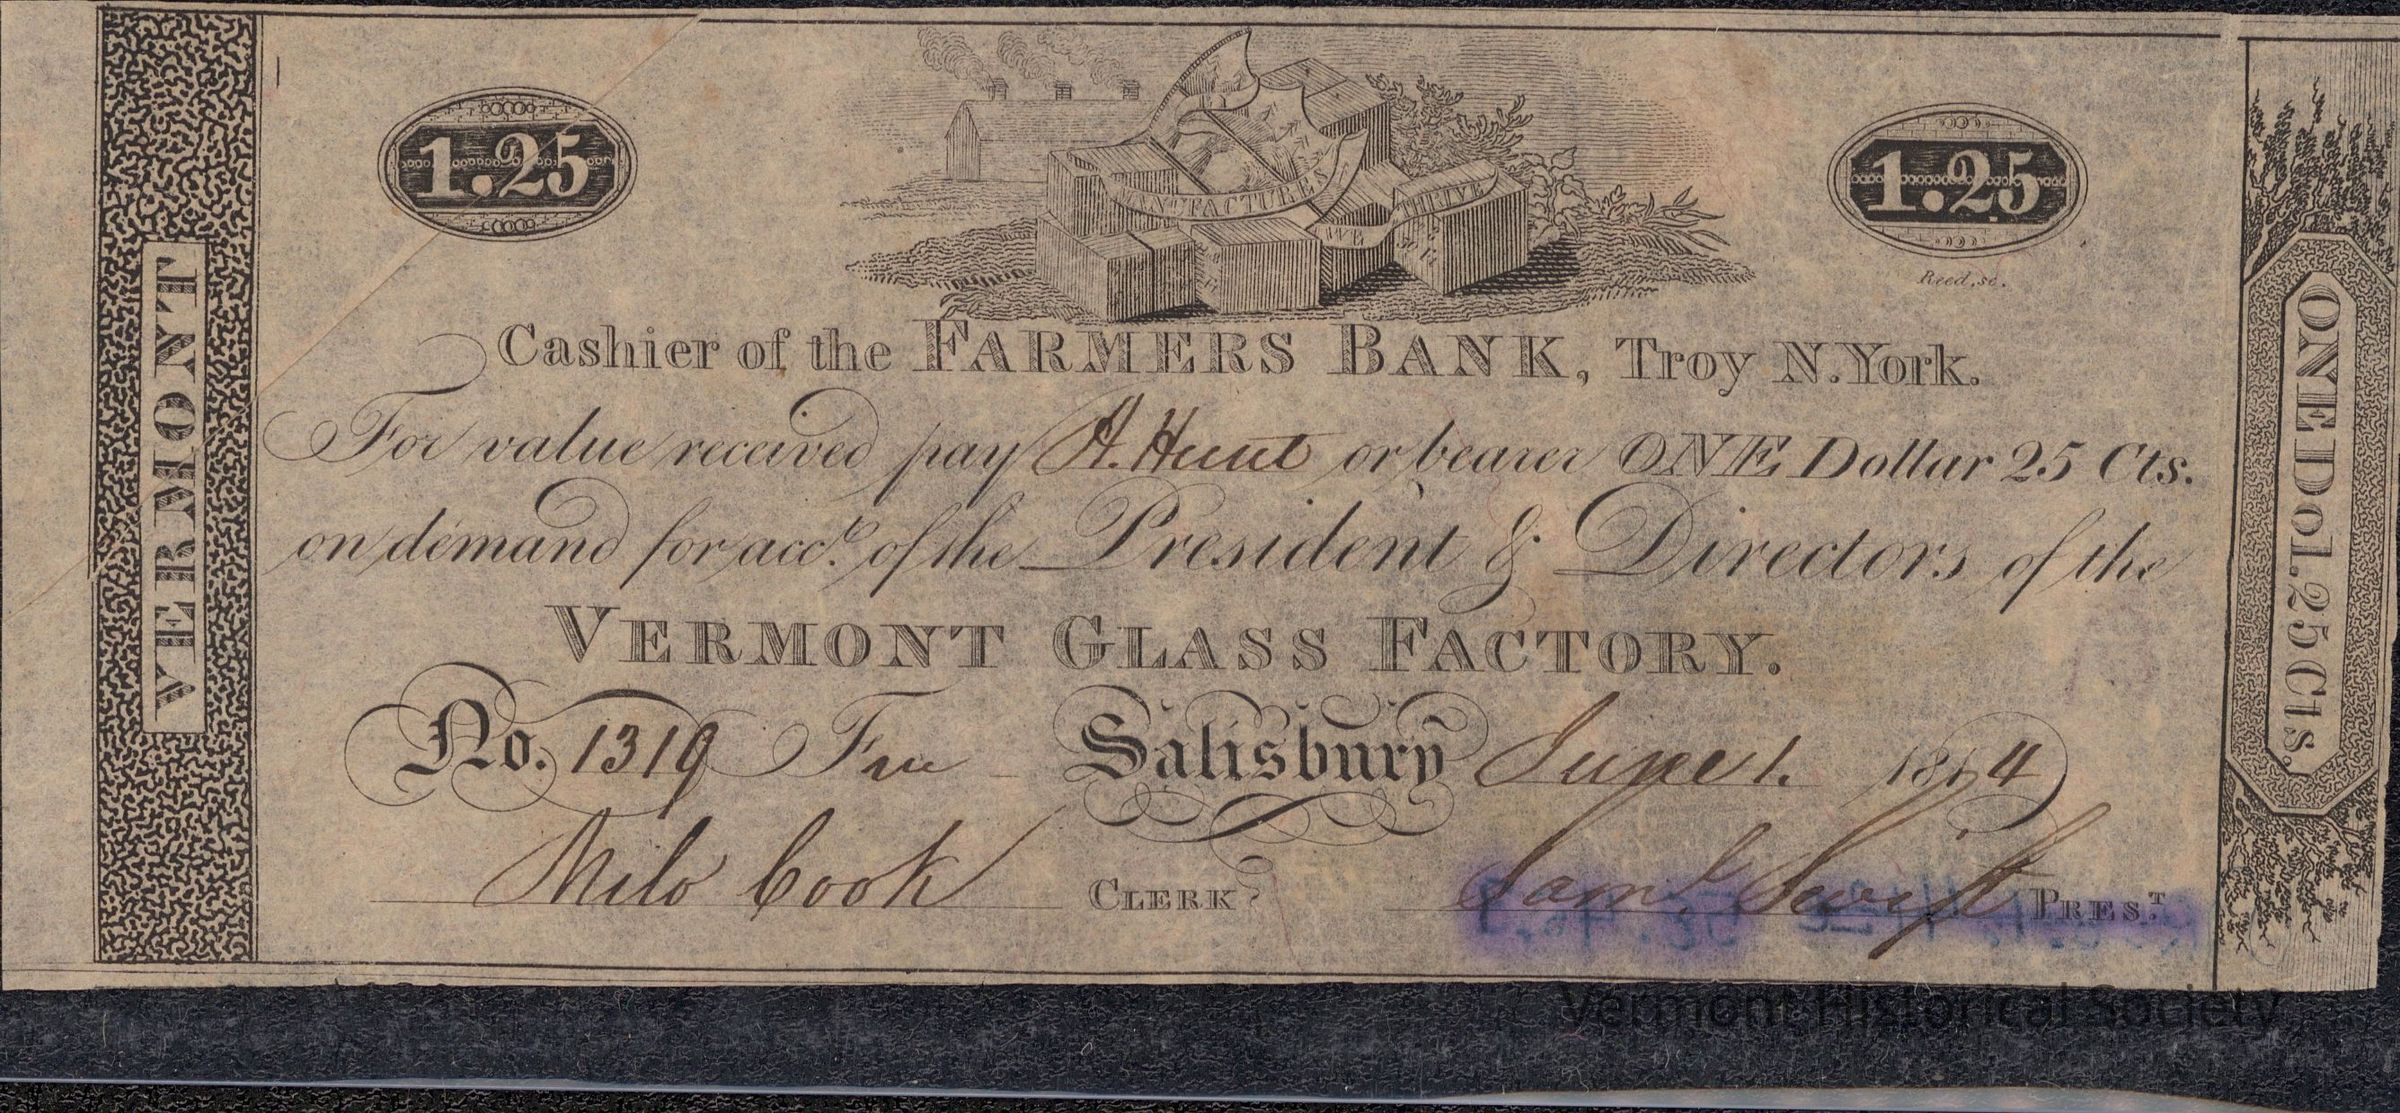 VERMONT
1.25
MANUFACTURES
WE
THRIVE
1.25
Reed, sc.
Cashier of the FARMERS BANK, Troy N. York.
For value received pay H. Hunt or bearer ONE Dollar 25 Cts.
on demand for acct. of the President & Directors of the
VERMONT GLASS FACTORY.
No. 1319 Salisbury June 1. 1814
Milo Cook CLERK Saml. Swift PREST.
ONE Dol. 25 Cts.
Vermont Historical Society